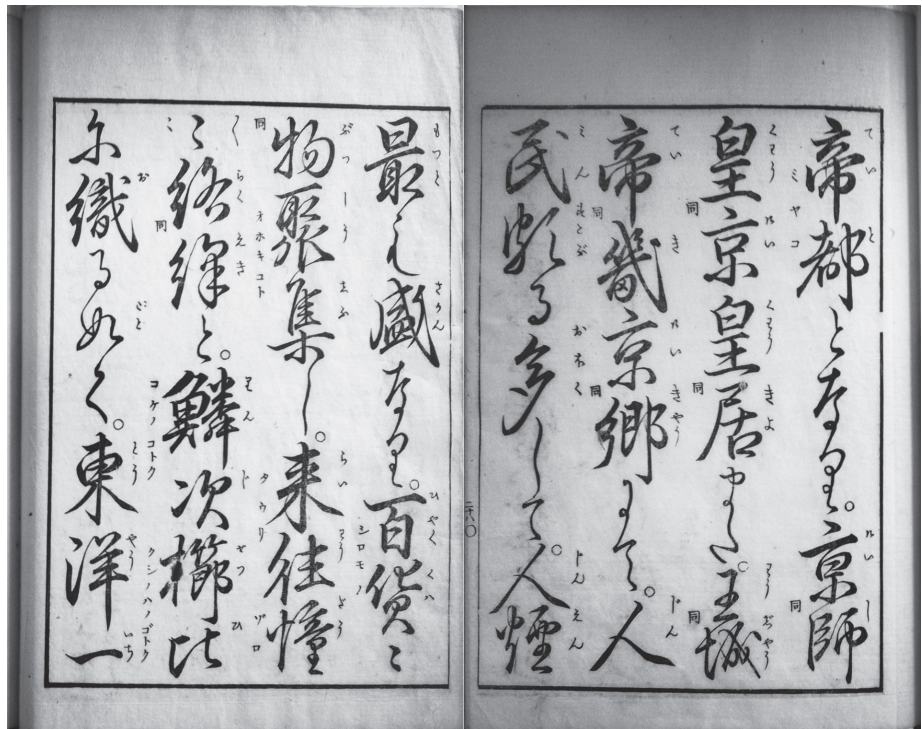 帝都となり。京師
皇京皇居また。王城
帝畿京郷にして。人
民頗る多して。人煙
最も盛なり。百貨〻
物聚集し。来往憧
〻絡繹と。鱗次櫛比
に織る如く。東洋一